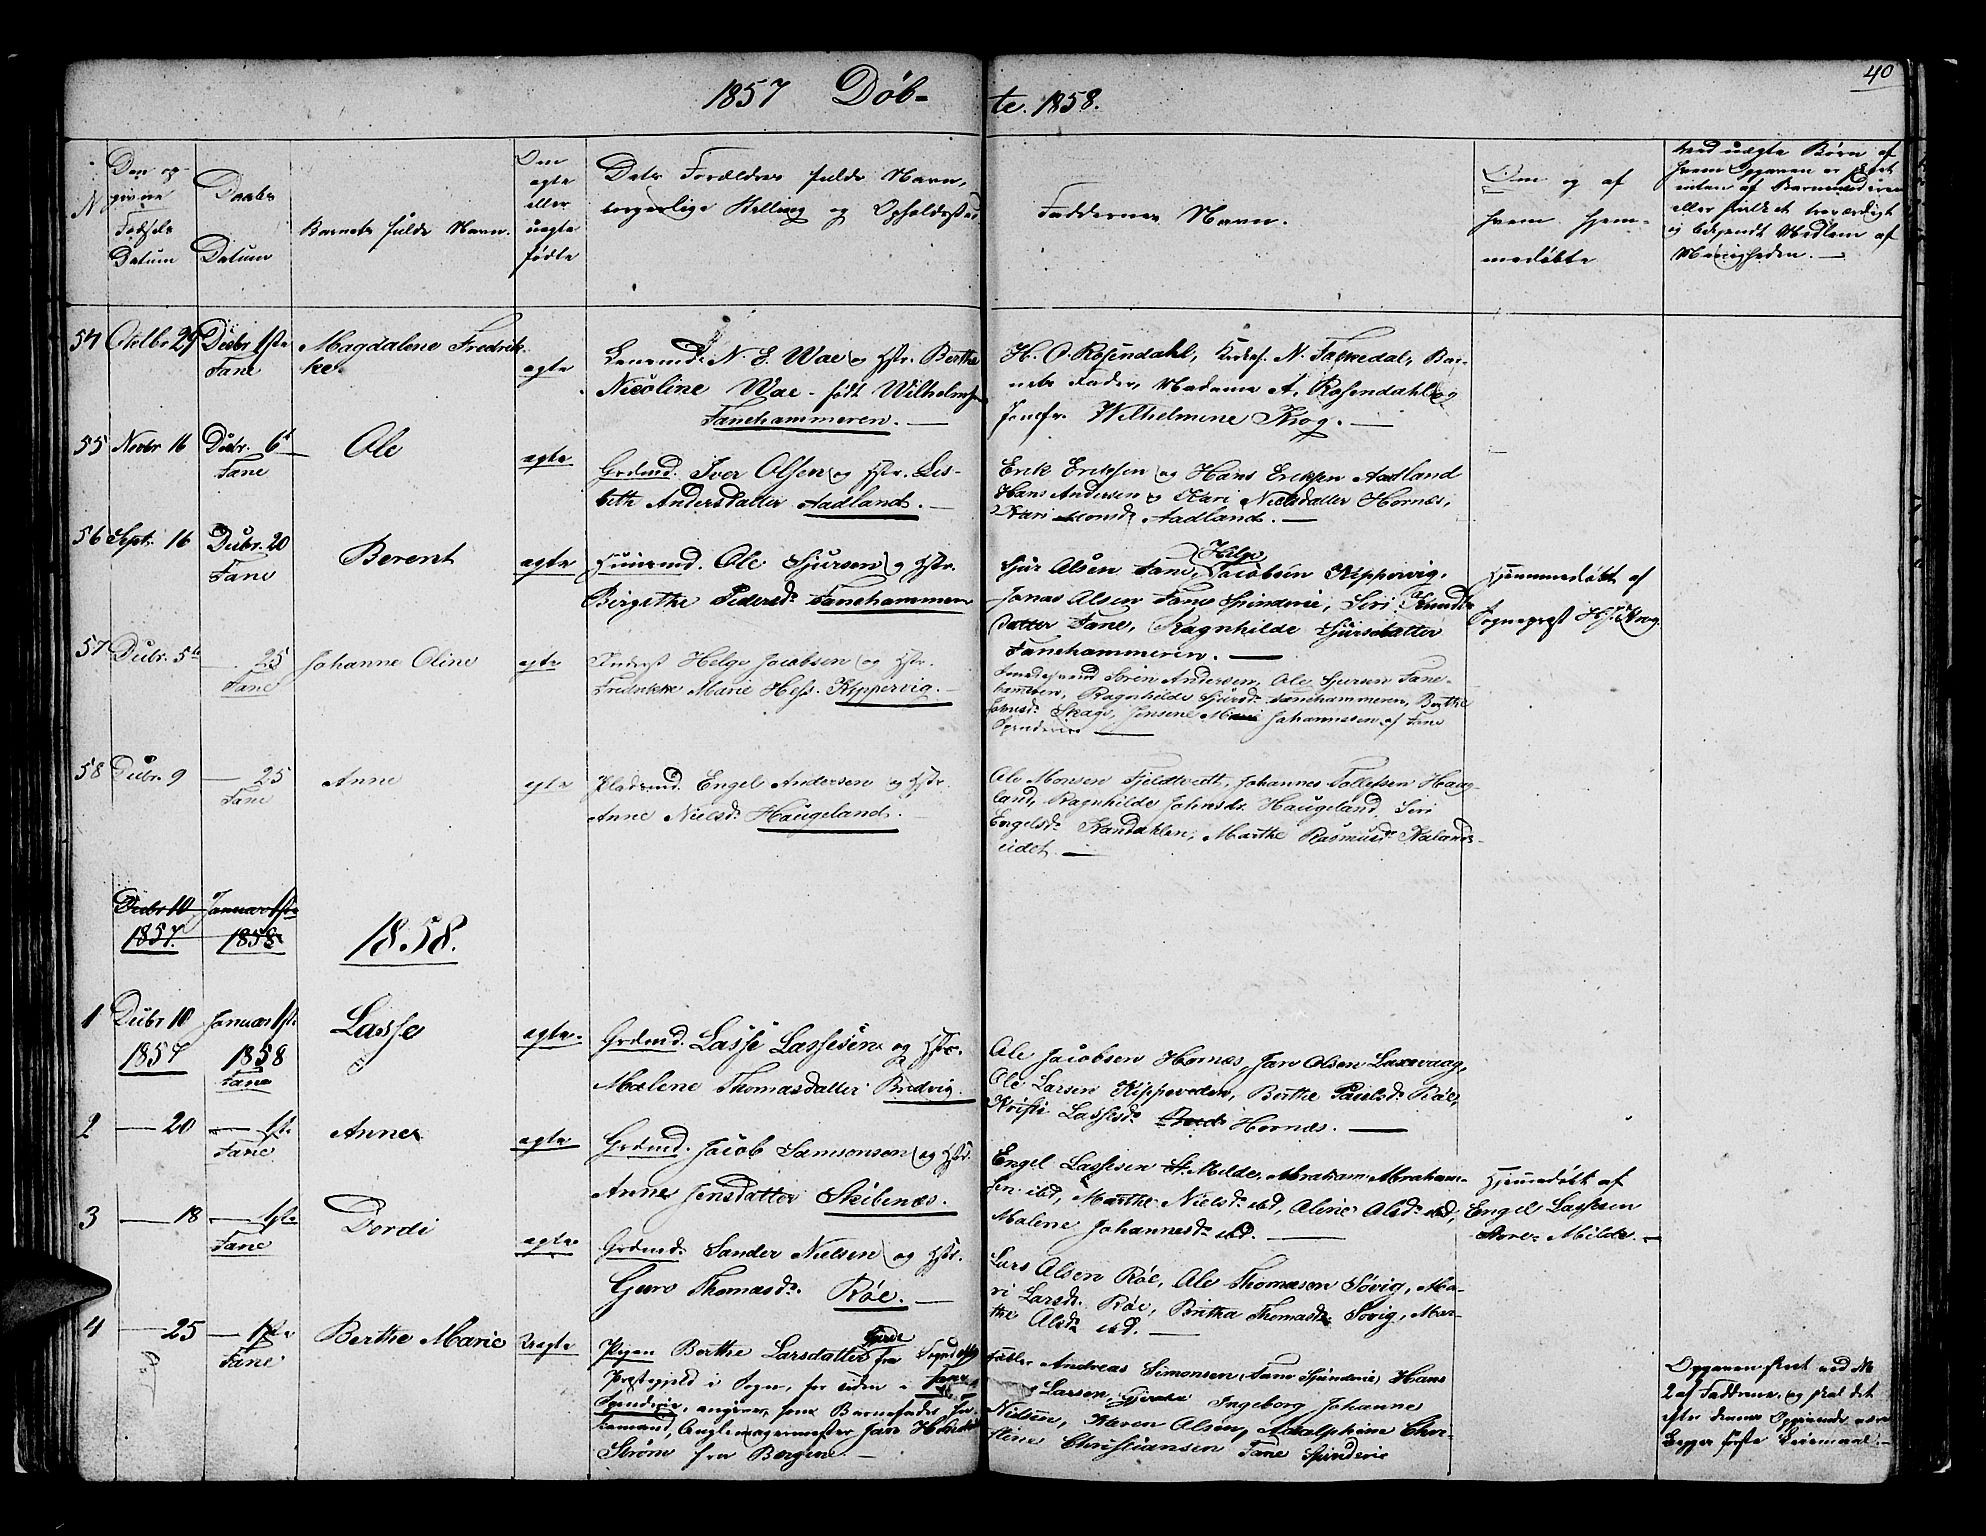 40
1857 Døb-
te. 1858.
N
Den op-
givne
Fødsels
Datum
Daabs
Datum
Barnets fulde Navn.
Om
ægte
eller
uægte
fødte
Dets Forældres fulde Navn,
borgerlige Stilling og Opholdssted
Faddernes Navn.
Om og af
hvem hjem-
medøbte
Ved uægte Børn af
hvem Opgaven er skeet
enten af Barnemoderen
eller hvilket troværdigt
og bekjendt Medlem af
Menigheden. —
54 Octbr 29 Decbr 1ste
Fane
Magdalene Fredrik-
ke
ægte
Lensmd. N. E. Wae og Hstr. Berthe
Nicoline Wae - født Wilhelmsen
Fanehammeren. —
H. O. Rosendahl, N. Taskedal, Bar-
nets Fader, Madame A. Rosendahl og
Jomfr. Wilhelmine Krog. —
55 Novbr 16 Decbr. 6te
Fane
Ole
ægte
Grdmd. Iver Olsen og Hstr. Lis-
beth Andersdatter Aadland. —
Erik Eriksen og Hans Eriksen Aadland
Hans Andersen og Kari Nielsdatter Hornæs,
Kari Monsd. Aadland. —
56 Septr. 16 Decbr. 20
Fane
Berent
ægte
Huusmd. Ole Sjursen og Hstr.
Birgithe Pedersd. Fanehammeren
Sjur Olsen Fane, Helge Jacobsen Kippervig,
Jonas Olsen Fane Spinderie, Siri Knuds-
datter Fane, Ragnhilde Sjursdatter
Fanehammeren. —
Hjemmedøbt af
Sogneprest Hr. Krog.
57 Decbr. 5te — 25
Fane
Johanne Oline
ægte
Helge Jacobsen og Hstr.
Fredrikke Marie Hess. Kippervig. —
Søren Andersen, Ole Sjursen Fane-
hammeren, Ragnhilde Sjursd. Fanehammeren, Berthe
Johnsd. Skage, Jensine Marie Johannesen af Fane
Spinderie —
58 Decbr. 9 — 25
Fane
Anne
ægte
Pladsmd. Engel Andersen og Hstr.
Anne Nielsd. Haugeland. —
Ole Monsen Fjeldtvedt, Johannes Tollefsen Haug-
land, Ragnhilde Johnsd. Haugeland, Siri
Engelsd. Kandahlen, Marthe Rasmusd. Kalands-
eidet. —
Decbr 10 Januar 1ste
1857. 1858
1858.
1 Decbr 10 Januar 1ste
1857 1858
Fane
Lasse
ægte
Grdmd. Lasse Lassesen og Hstr.
Malene Thomasdatter Bredvig.
Ole Jacobsen Hornæs, Jan Olsen Laxevaag,
Ole Larsen Kippeveden, Berthe Paulsd. Røe,
Kristi Lassesd. Hornæs. —
2 — 20 — 1ste
Fane
Anne
ægte
Grdmd. Jacob Samsonsen og Hstr.
Anne Jensdatter Skeibenæs.
Engel Lassesen St. Milde, Abraham Abraham-
sen ibd, Marthe Nielsd. ibd, Aline Olsd. ibd,
Malene Johannesd. ibd. —
Hjemmedøbt af
Engel Lassesen
Store Milde. —
3 — 18 — 1ste
Fane
Dordi
ægte
Grdmd. Sander Nielsen og Hstr.
Guro Thomasd. Røe. —
Lars Olsen Røe, Ole Thomasen Søvig, Ma-
ri Larsd. Røe, Britha Thomasd. Søvig, Mar-
the Olsd. ibd. —
4 — 25 — 17de
Fane
Berthe Marie
Uægte
Pigen Berthe Larsdatter fra Sogndals
Præstegjeld i Sogn, for tiden i Fane
Spinderie, angiver som Barnefader
Jan
Strøm fra Bergen. —
Andreas Simonsen Fane Spinderie, Hans
Larsen, Ingeborg Johanne
Nielsen, Karen Olsen, Adolphine Chri-
stine Christiansen Fane Spinderie
Opgaven skeet ved No
2 af Fadderne, og skal det
efter dennes Opgivende være
Begges første Leiermaal. —